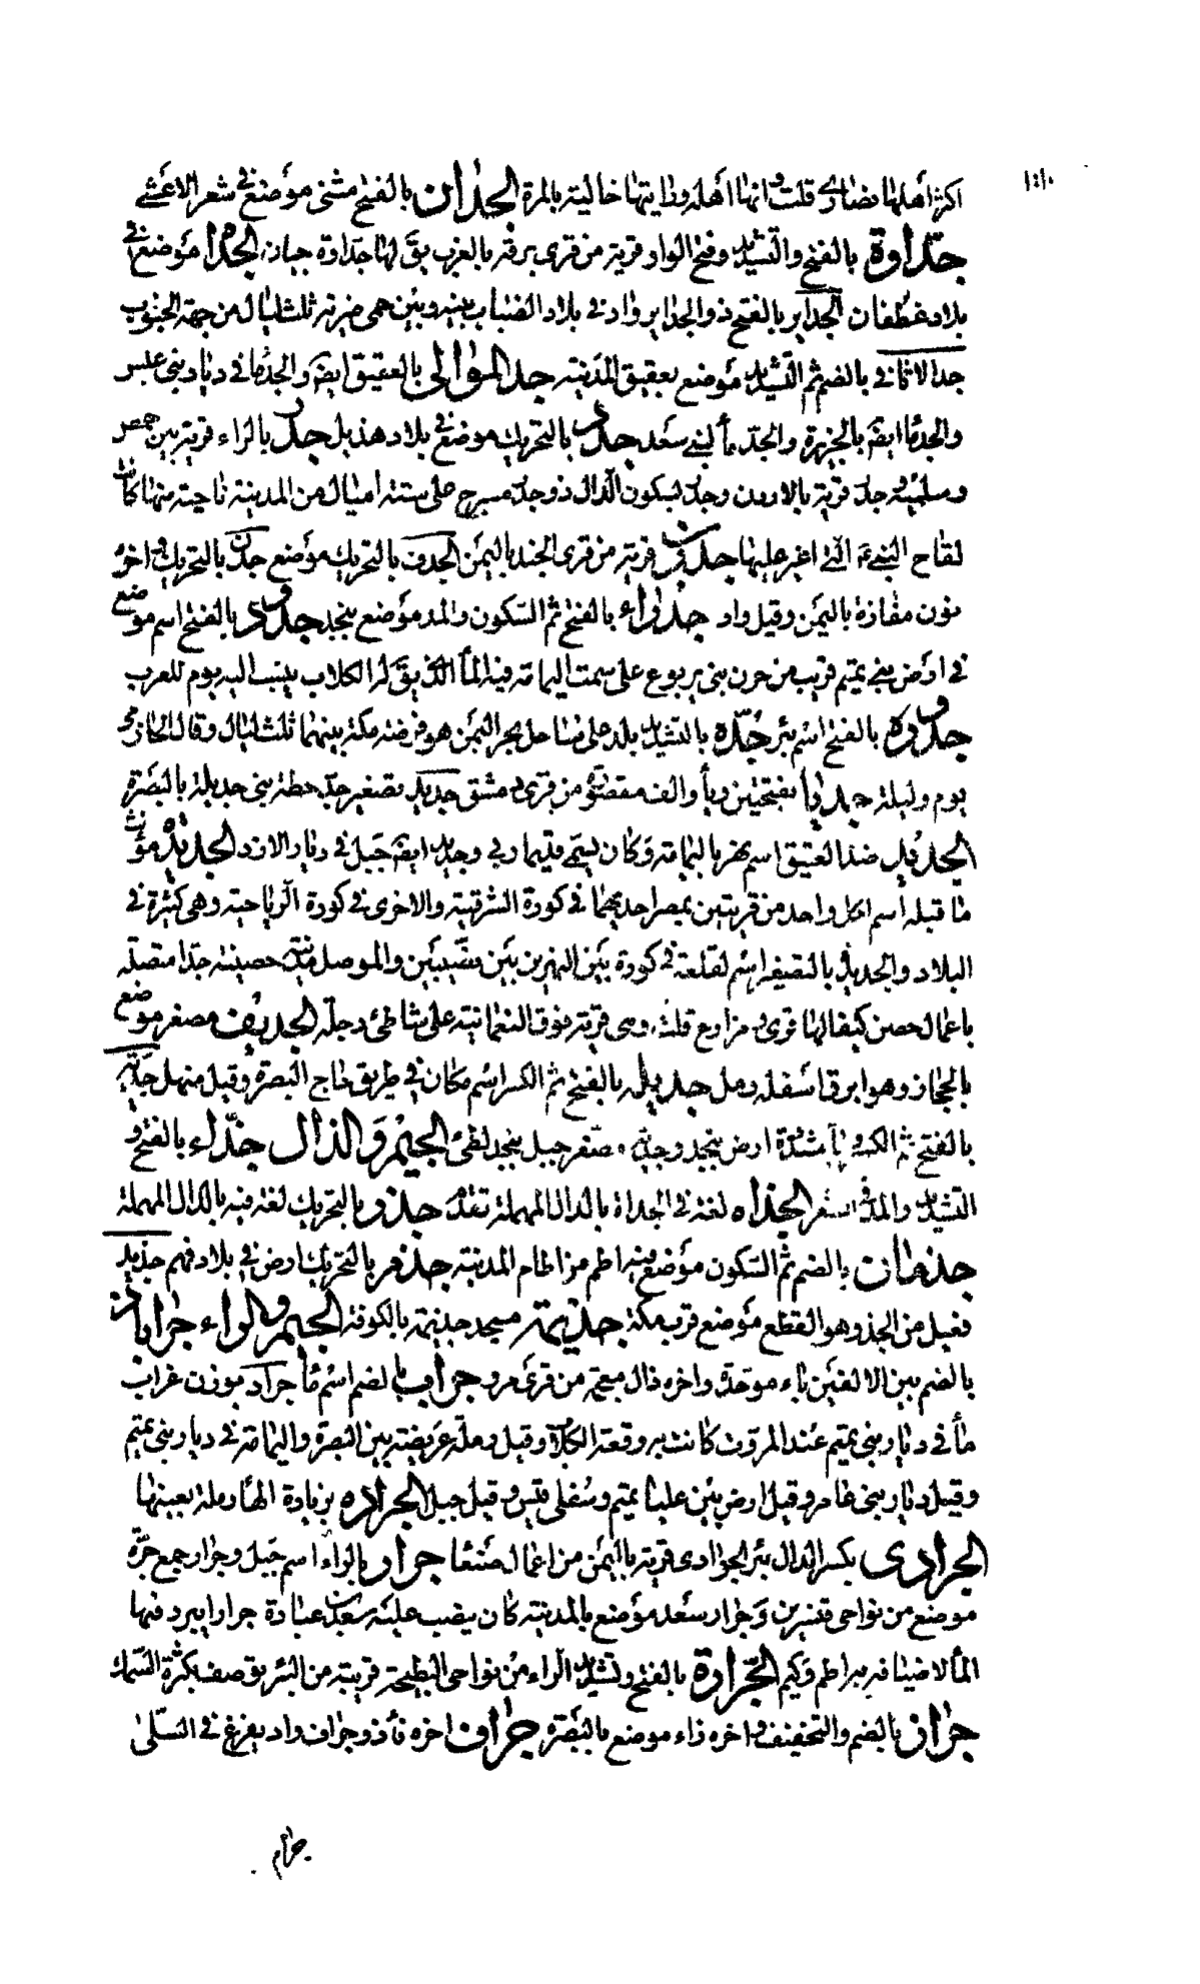 اكثر أهلها نصارى قلت وانها أهله وطايتها خالية بالمرة الجدان بالفتح مثنى موضع في شعر الاعشى
جدّاوة بالفتح والتشديد وفتح الواو قرية من قرى برقة بالغرب يقَ لها جدّاوة حيان الجدا موضع في
بلاد غطفان الجداير بالفتح ذو الجداير واد في بلاد الضباب بينه وبين حمى ضرية ثلث ليال من جهة الجنوب
جد الاثافي بالضم ثم التشديد موضع بعقيق المدينة جد الموالى بالعقيق ايضَ والجد ما في ديار بنى عبس
والجد ما ايضَ بالجزيرة والجد مأ لبنى سعد جدد بالتحريك موضع في بلاد هذيل جدر بالراء قرية بين حمص
وسلمية وجدر قرية بالاردن وجدر بسكون الدال ذو جدر مسرح على ستة اميال من المدينة ناحية منها كانت
لقاح النبى التى اغير عليها قرية من قرى الجند باليمن الجدف بالتحريك موضع جدن بالتحريك واخره
نون مفازة باليمن وقيل واد جدواء بالفتح ثم السكون والمد موضع بنجد جدود بالفتح اسم موضع
في ارض بنى تميم قريب من حزن بنى يربوع على سمت اليمامة فيه المأ الذى يقَ له الكلاب ينسب اليه يوم للعرب
جدورة بالفتح اسم بئر جُدّة بالتشديد بلد على ساحل بحر اليمن هو فرضة مكة بينهما ثلث ليال وقال الحازمى
يوم وليلة جديا بفتحتين ويأ والف مقصورة من قرى دمشق جديد تصغير جد خطة بنى جديلة بالبصرة
الجديد ضد العتيق اسم نهر باليمامة وكان يسمى قديما وجديد ايضَ جبل في ديار الازد الجديدة مؤنث
ما قبله اسم لكل واحد من قريتين بمصر احديهما في كورة الشرقية والاخرى في كورة الرياحية وهى كثيرة في
البلاد والجديدة بالتصغير اسم لقلعة في كورة بين النهرين بين نصيبين والموصل مدينة حصينة جدا متصلة
باعمال حصن كيفا لها قرى ومزارع قلت وهى قرية فوق النعمانية على شاطئ دجلة الجديف مصغر موضع
بالحجاز وهو ابرق اسفله رمل جديلة بالفتح ثم الكسر اسم مكان في طريق حاج البصرة وقيل منهل جدية
بالفتح ثم الكسر ويأ مشددة ارض بنجد وجدية مصغر جبل بنجد لطئ الجيم والذال جذّاء بالفتح و
التشديد والمد في شعر الجذاه لغة في الجداة بالدال المهملة تقدم جذر بالتحريك لغة فيه بالدال المهملة
جذمان بالضم ثم السكون موضع فيه اطم من اطام المدينة جذم بالتحريك ارض في بلاد فهم جذيد
فعيل من الجذ وهو القطع موضع قرب مكة جذيمة مسجد جذيمة بالكوفة الجيم والراء جراباذ
بالضم بين الالفين باء موحدة واخره ذال معجمة من قرى مرو جراب بالضم اسم مأ جراد بوزن غراب
مأ في ديار بنى تميم عند المروت كانت به وقعة الكلاب وقيل رملة عريضة بين البصرة واليمامة في ديار بنى تميم
وقيل ديار بنى عامر وقيل ارض بين عليا تميم وسفلى قيس وقيل جبل الجراده بزيادة الهأ رملة بعينها
الجرادى بكسر الدال بئر الجرادى قرية باليمن من اعمال صنعا جرار بالراء اسم جبل وجرار جمع جرّة
موضع من نواحى قنسرين وجرار سعد موضع بالمدينة كان ينصب عليه سعد بن عبادة جرارا يبرد فيها
المأ لاضيافه به اطم دليم الجرّارة بالفتح وتشديد الراء من نواحى البطيحة قريبة من البر يوصف بكثرة السمك
جراز بالضم والتخفيف واخره زاء موضع بالبصرة جراف اخره فأ ذو جراف واد يفرغ في السلى
جرام